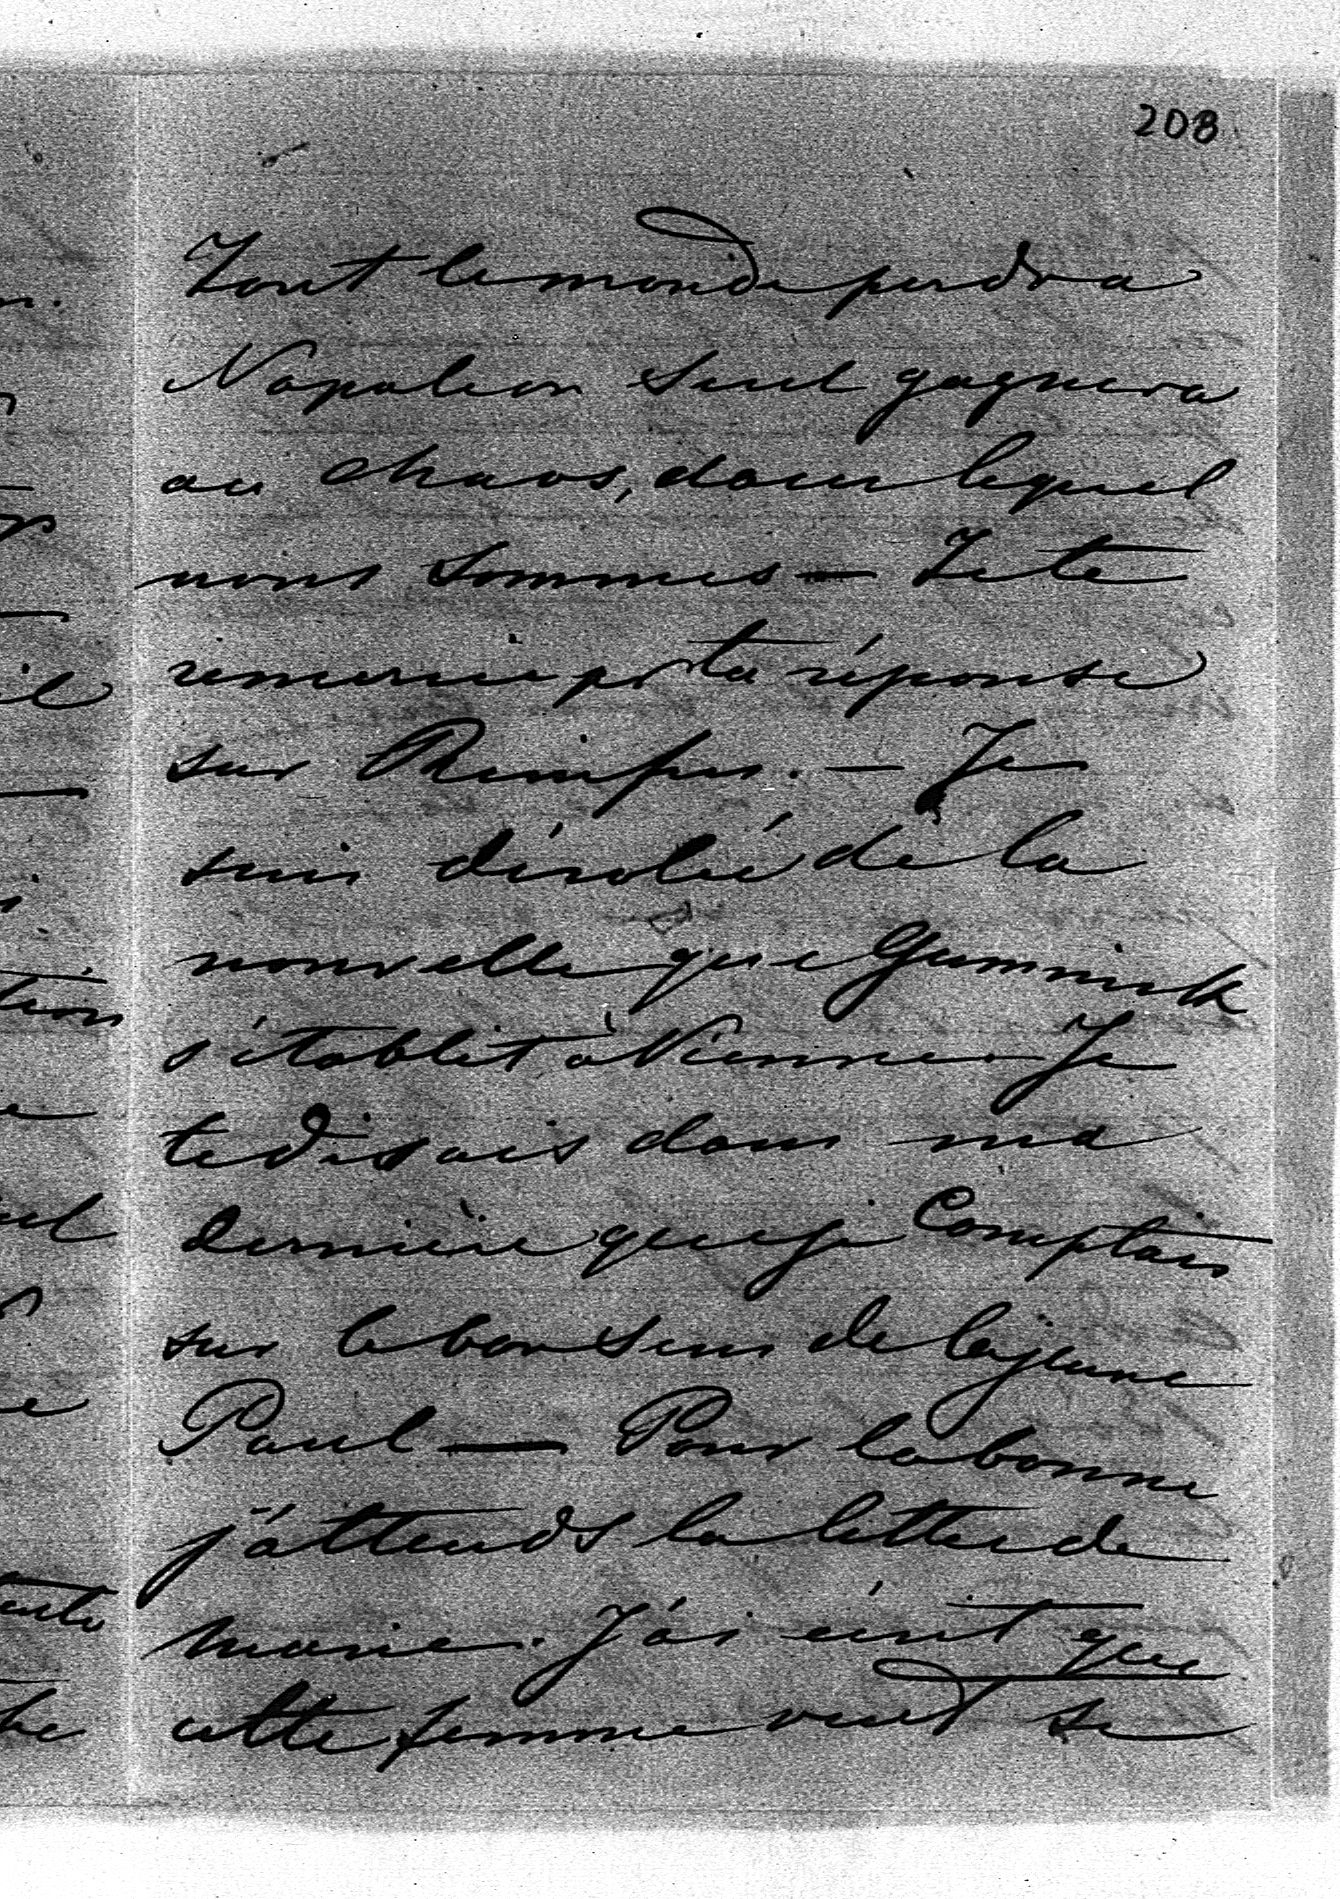 208
Tout le monde perdra
Napoleon seul gagnera
au chaos, dans lequel
nous sommes — Je te
remercie pr ta réponse
sur . — Je
suis désolée de la
nouvelle que
s'établit à Vienne. Je
te disais dans ma
dernière que je comptais
sur le bon sens de la jeune
Paul — Pour la bonne
j'attends la lettre de
Marie. J'ai écrit que
cette femme veut se